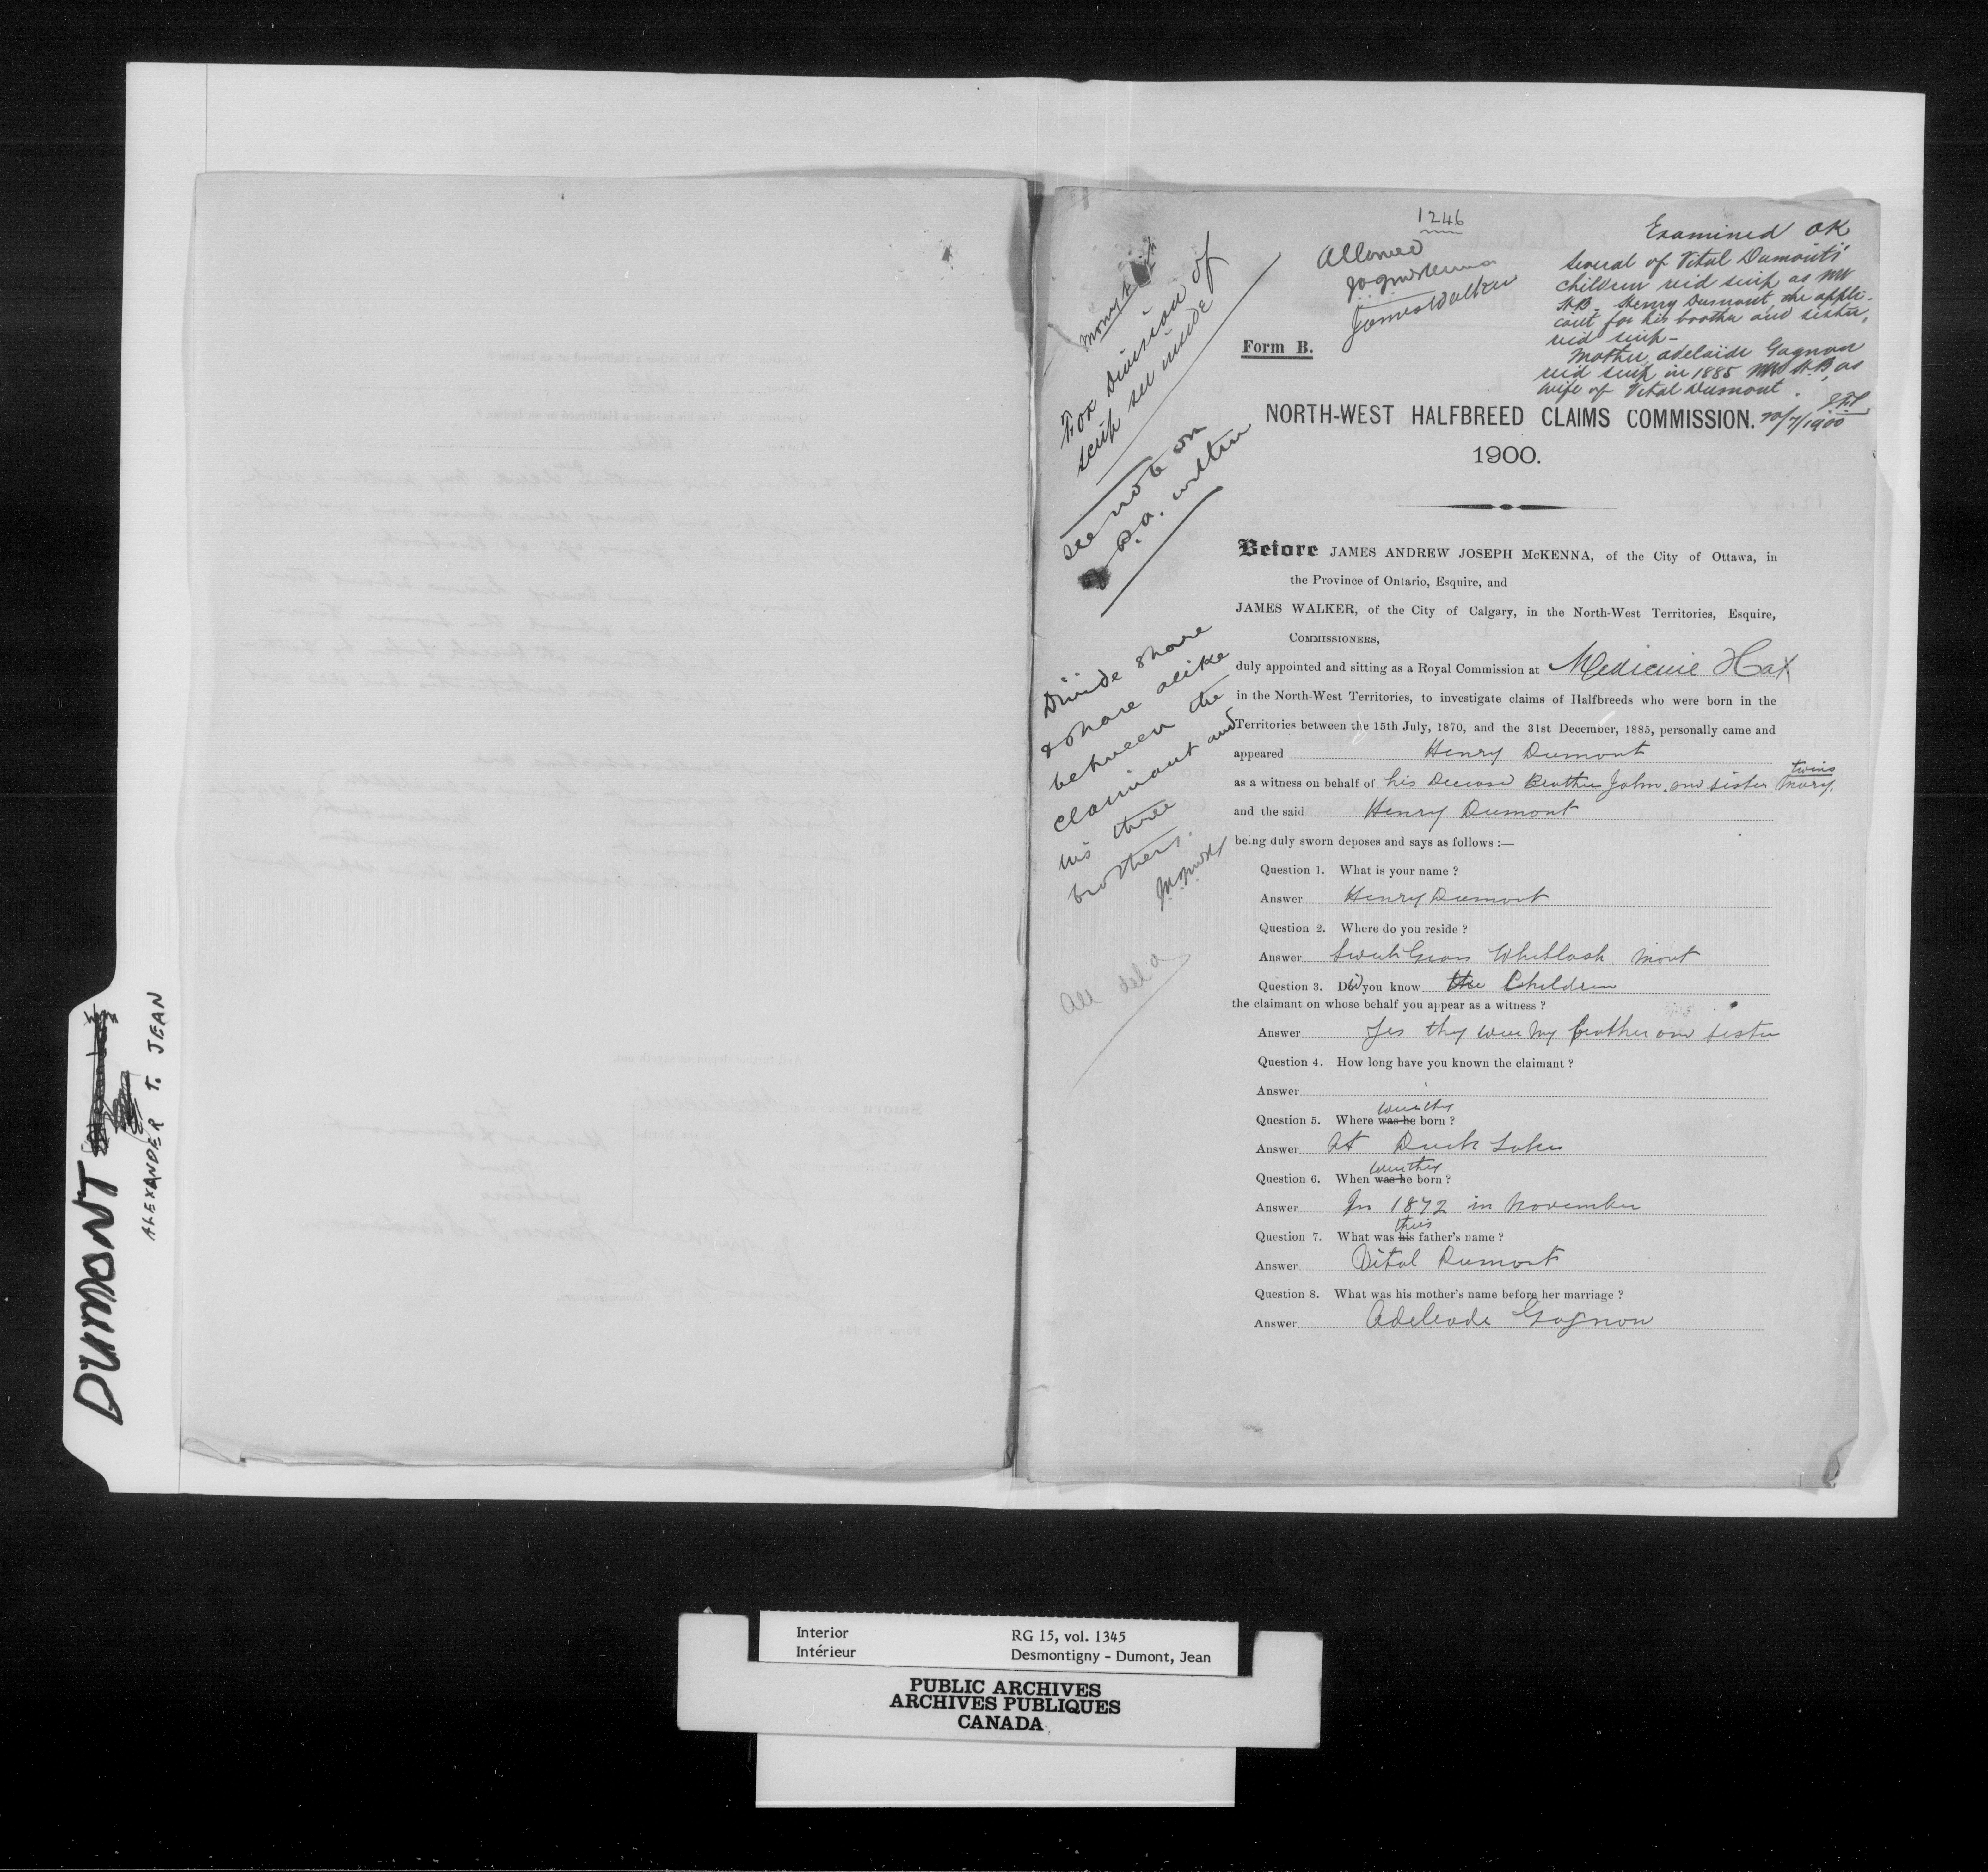 DUMONT
ALEXANDER T. JEAN
1246
Allowed
JAJ McKenna
James Walker
Examined OK
Several of Vital Dumont's
children rec'd scrip as NW
H.B. Henry Dumont, the appli-
cant for his brother and sister,
rec'd scrip -
Mother, Adelaide Gagnon
rec'd scrip in 1885 NW H.B, as
wife of Vital Dumont.
20/7/1900
Money scrip
For Division of
scrip see inside
See note on
P.A. within
Divide share
& share alike
between the
claimant and
his three
brothers.
JAJMcK
All del'd
Form B.
NORTH-WEST HALFBREED CLAIMS COMMISSION.
1900.
Before JAMES ANDREW JOSEPH McKENNA, of the City of Ottawa, in
the Province of Ontario, Esquire, and
JAMES WALKER, of the City of Calgary, in the North-West Territories, Esquire,
COMMISSIONERS,
duly appointed and sitting as a Royal Commission at Medicine Hat
in the North-West Territories, to investigate claims of Halfbreeds who were born in the
Territories between the 15th July, 1870, and the 31st December, 1885, personally came and
appeared Henry Dumont
twins
as a witness on behalf of his Decease Brother John and sister Mary.
and the said Henry Dumont
being duly sworn deposes and says as follows :—
Question 1. What is your name ?
Answer Henry Dumont
Question 2. Where do you reside ?
Answer Sweet Grass Whitlash Mont
Question 3. Did you know the Children
the claimant on whose behalf you appear as a witness ?
Answer Yes they were my brother and sister
Question 4. How long have you known the claimant ?
Answer
were they
Question 5. Where was he born ?
Answer At Duck Lake
were they
Question 6. When was he born ?
Answer In 1872 in November
their
Question 7. What was his father's name ?
Answer Vital Dumont
Question 8. What was his mother's name before her marriage ?
Answer Adeleade Gagnon
Interior
Intérieur
RG 15, vol. 1345
Desmontigny - Dumont, Jean
PUBLIC ARCHIVES
ARCHIVES PUBLIQUES
CANADA